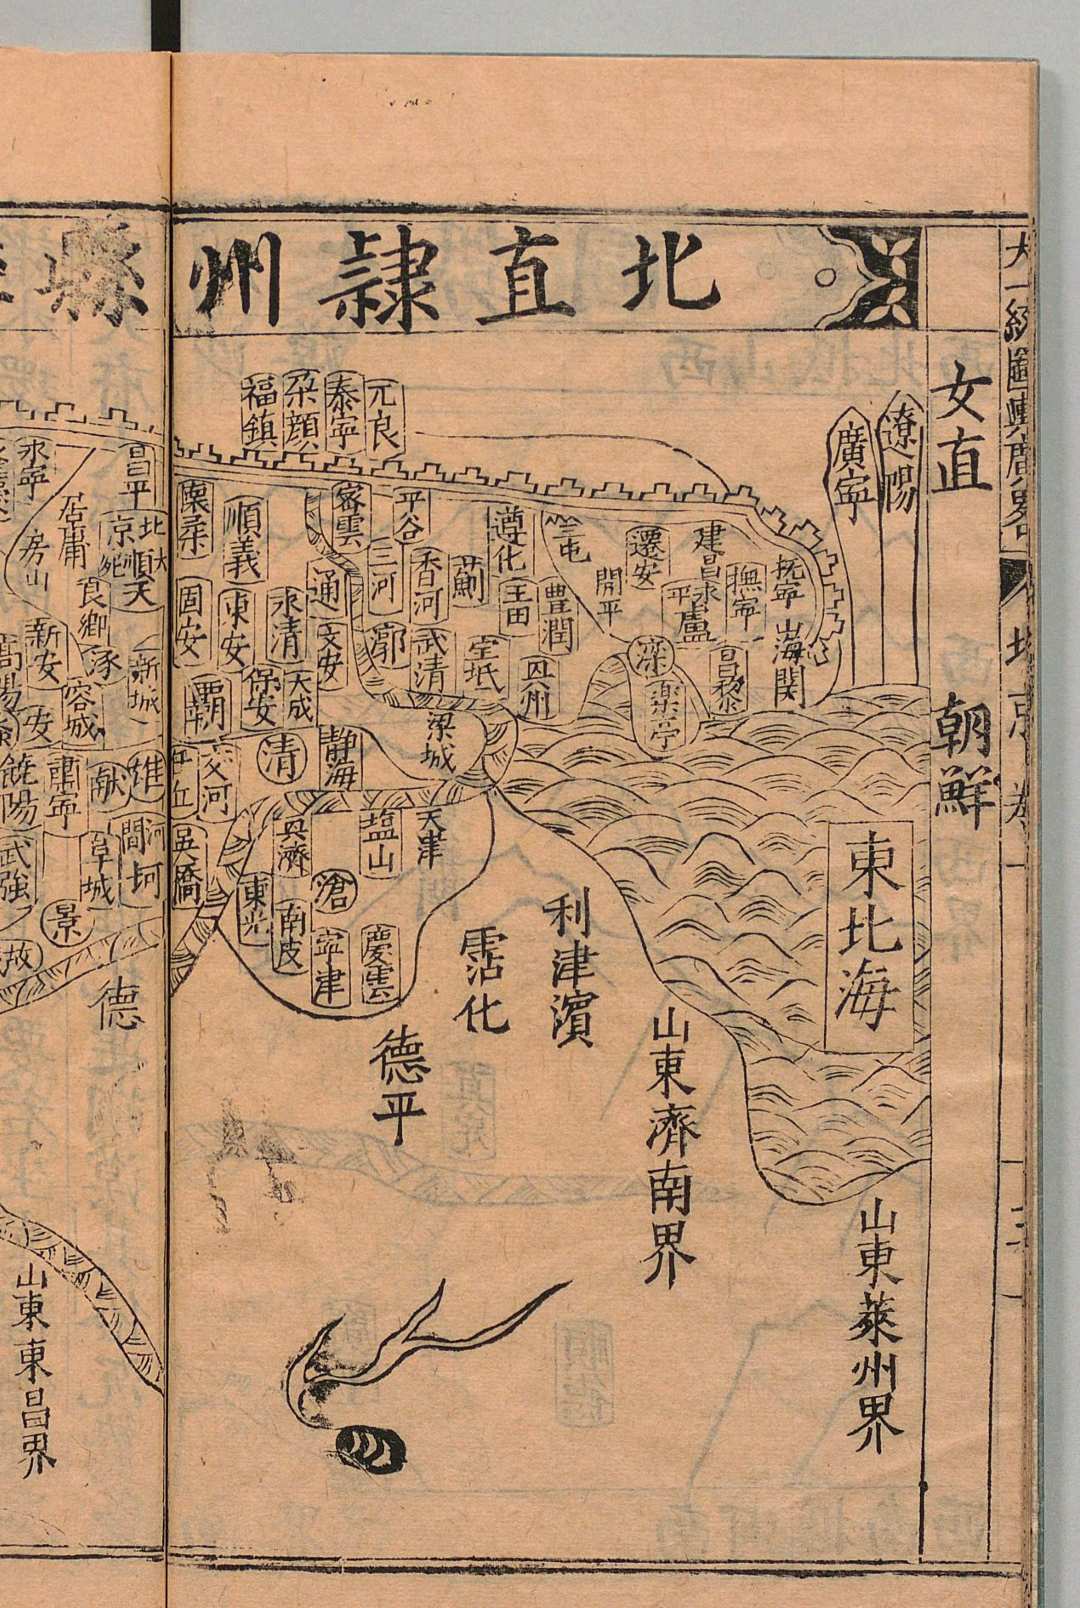 北直隷州縣
女直
朝鮮
遼陽
廣寧
元良
泰寧
朵顔
福鎮
東北海
山東萊州界
山東濟南界
利津濱
霑化
德平
德
山東東昌界
撫寧
山海関
建昌
永平
盧
撫寧
昌黎
遷安
灤
楽亭
開平
遵化
玉田
豊潤
薊
平谷
三河
香河
宝坻
武清
梁城
密雲
通
漷
順義
東安
永清
文安
懐柔
固安
保安
大成
覇
清
静海
交河
天津
塩山
滄
慶雲
寧津
南皮
東光
吳橋
昌平
北京
順天
居庸
永寧
房山
良鄉
涿
新城
新安
容城
安
雄
献
肅寧
饒陽
武強
河間
阜城
景
故